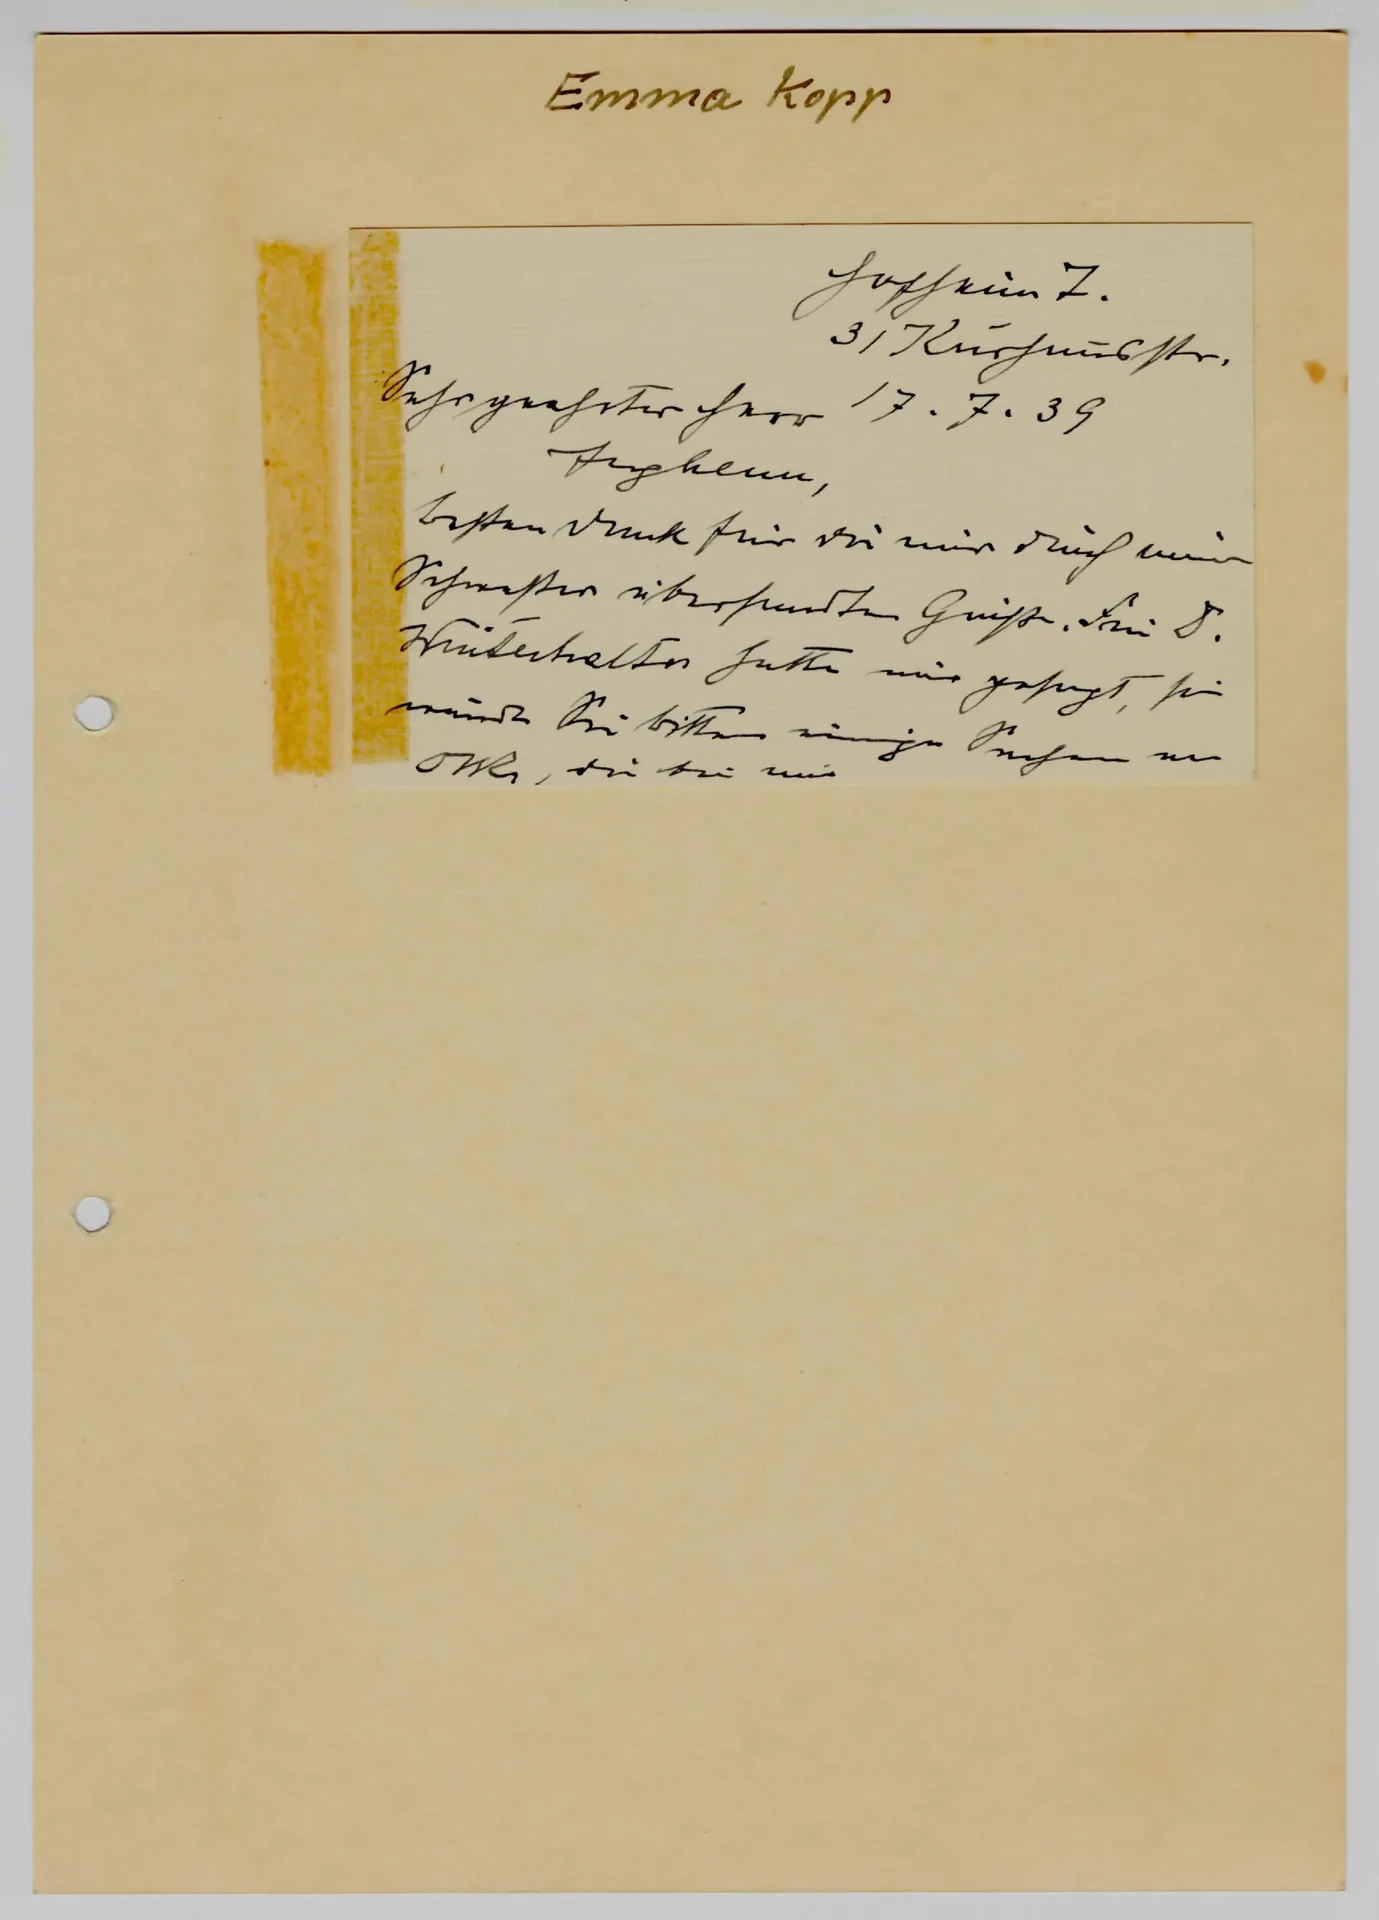 Emma Kopp
Hofheim T.
31 Kurhausstr.
Sehr geehrter Herr 17.7.39
besten Dank für die mir durch meine
Schwester übersandten Grüsse. Frl. D.
Winterhalter hatte mir gesagt, sie
würde Sie bitten einige Sachen von
OWR, die bei mir